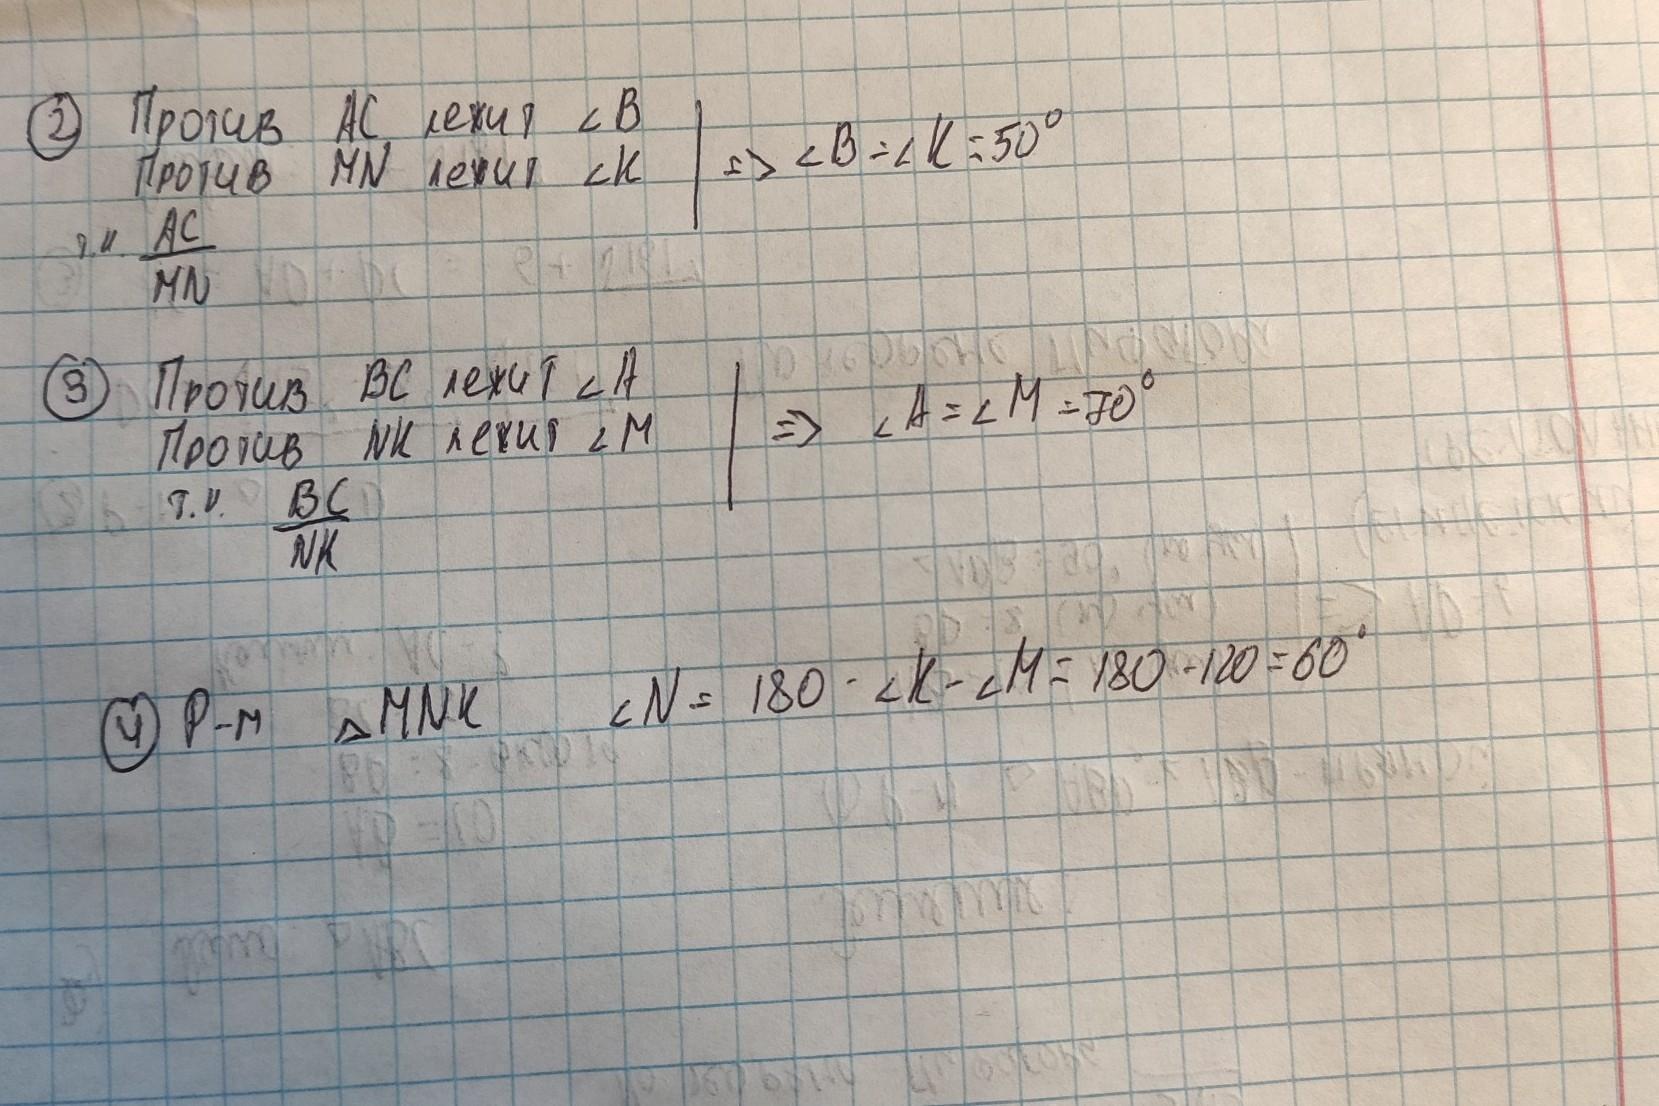 ② Против AC лежит ∠B
Против MN лежит ∠K
=> ∠B = ∠K = 50°
т.к. AC
MN
③ Против BC лежит ∠A
Против NK лежит ∠M
=> ∠A = ∠M = 70°
т.к. BC
NK
④ Р-м △MNK ∠N = 180 - ∠K - ∠M = 180 - 120 = 60°